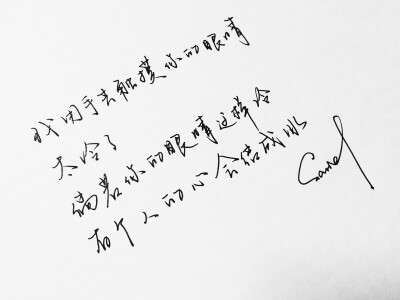 我用手去触摸你的眼睛
太冷了
倘若你的眼睛这样冷
有个人的心会结成冰